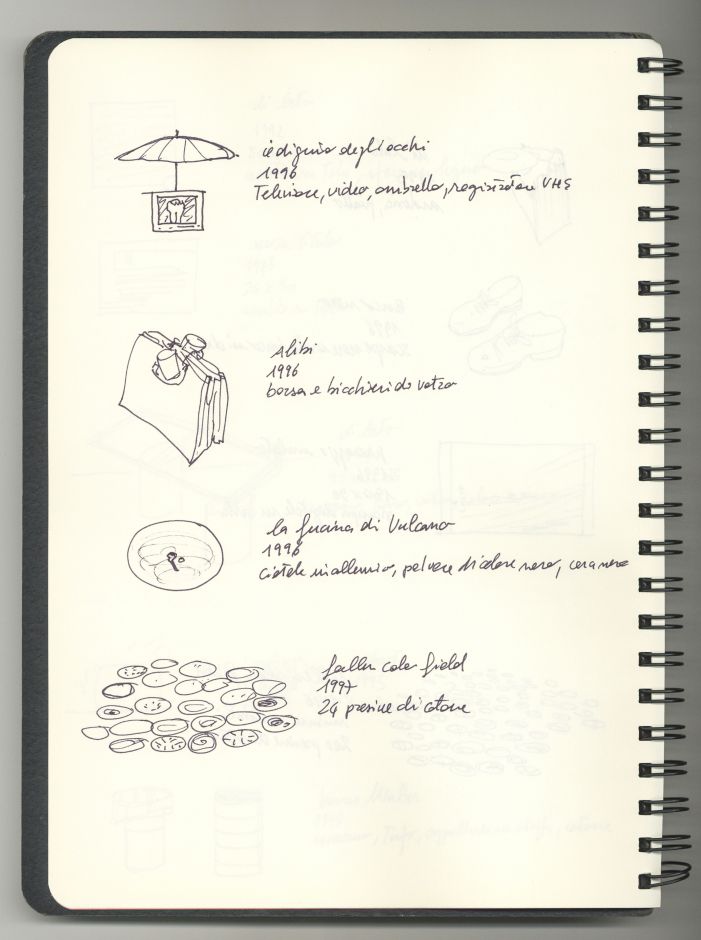 degli occhi
1996
Televisore, video, ombrello, registratore VHS
Alibi
1996
borsa e bicchieri di vetro
la fucina di Vulcano
1996
ciotole in alluminio, polvere di colore nero, cera nera
fallen color field
1997
24 presine di cotone